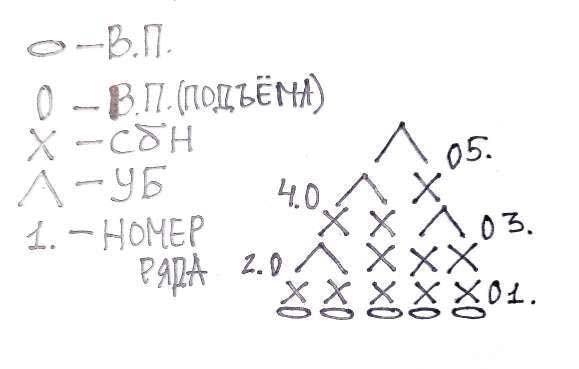 — В.П.
0 — В.П. (ПОДЪЁМА)
X — СБН
Λ — УБ
1. — НОМЕР
РЯДА
05.
4.0
03.
2.0
01.